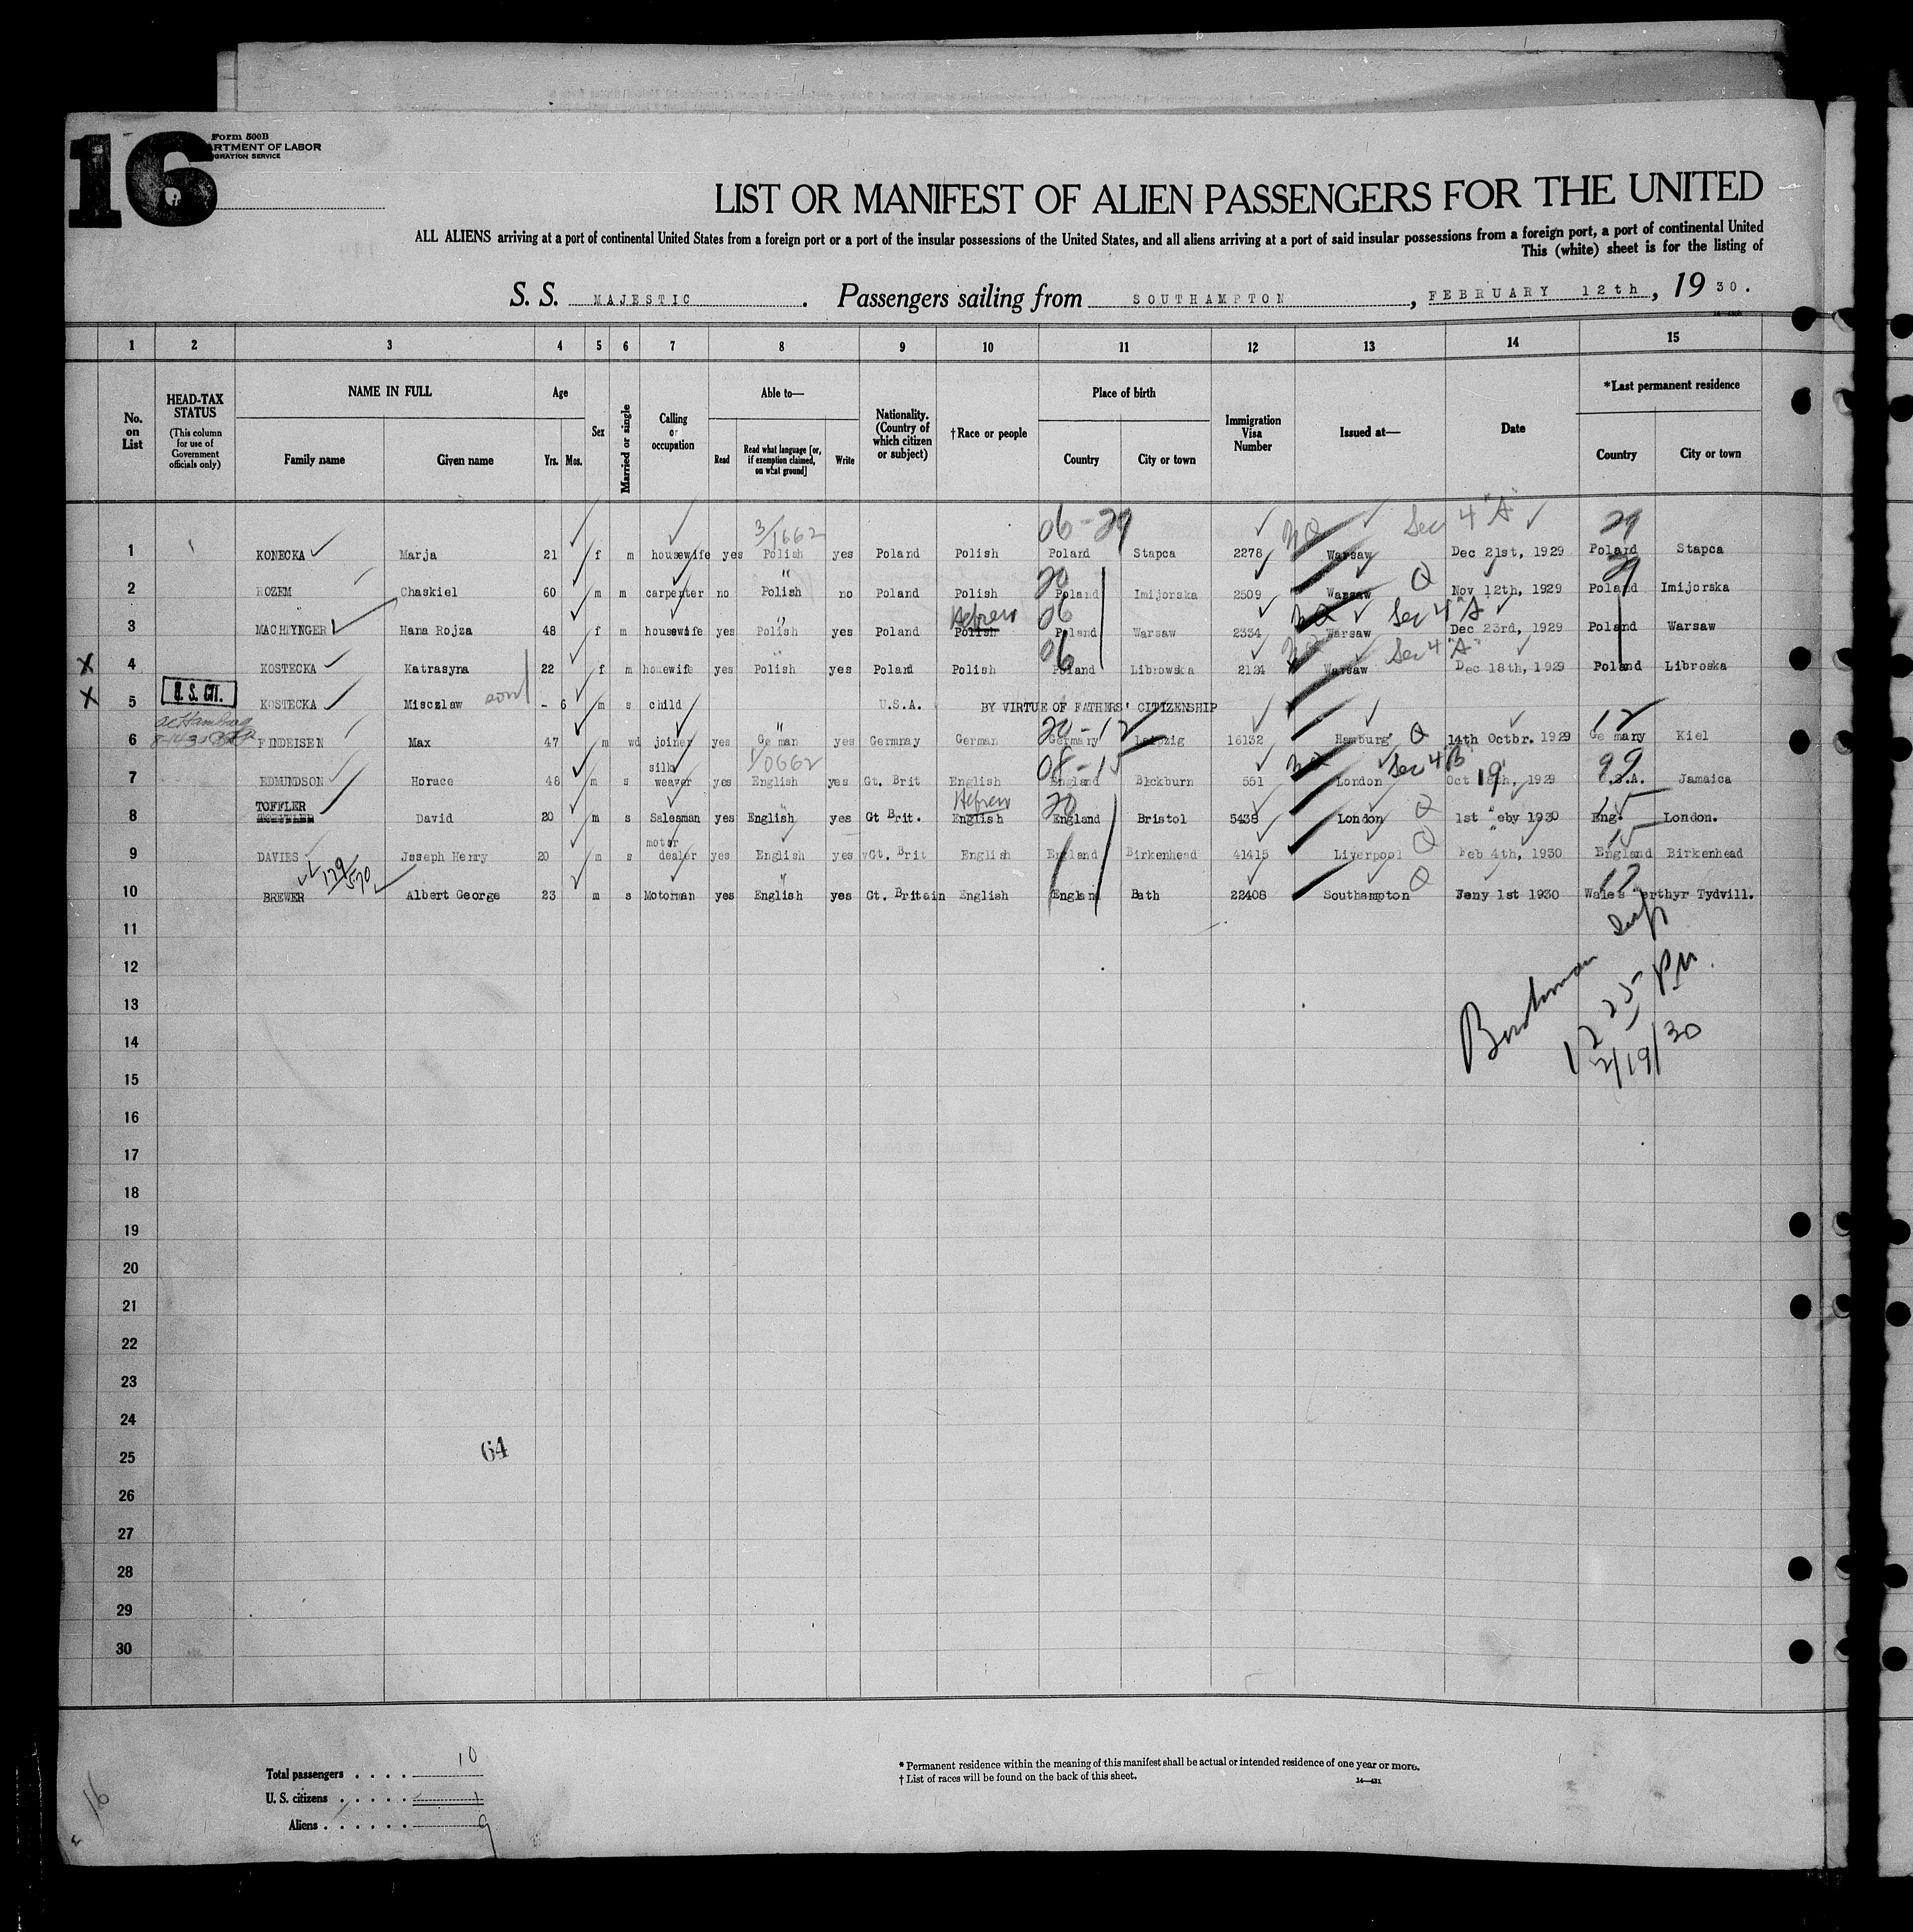 16
Form 500B
ARTMENT OF LABOR
GRATION SERVICE
LIST OR MANIFEST OF ALIEN PASSENGERS FOR THE UNITED
ALL ALIENS arriving at a port of continental United States from a foreign port or a port of the insular possessions of the United States, and all aliens arriving at a port of said insular possessions from a foreign port, a port of continental United
This (white) sheet is for the listing of
S. S. MAJESTIC . Passengers sailing from SOUTHAMPTON , FEBRUARY 12th , 19 30.
1 2 3 4 5 6 7 8 9 10 11 12 13 14 15
No. on List
HEAD-TAX STATUS (This column for use of Government officials only)
NAME IN FULL
Family name Given name
Age
Yrs. Mos.
Sex
Married or single
Calling or occupation
Able to—
Read Read what language [or, if exemption claimed, on what ground] Write
Nationality. (Country of which citizen or subject)
†Race or people
Place of birth
Country City or town
Immigration Visa Number
Issued at—
Date
*Last permanent residence
Country City or town
3/1662 06-29 Sec 4 "A" 29
1 KONECKA Marja 21 f m housewife yes Polish yes Poland Polish Poland Stapca 2278 Warsaw Dec 21st, 1929 Poland Stapca
" 20 Q 29
2 ROZEM Chaskiel 60 m m carpenter no Polish no Poland Polish Poland Imijorska 2509 Warsaw Nov 12th, 1929 Poland Imijorska
" Hebrew 06 NQ Sec 4 "A"
3 MACHTYNGER Hana Rojza 48 f m housewife yes Polish yes Poland Polish Poland Warsaw 2334 Warsaw Dec 23rd, 1929 Poland Warsaw
" 06 NQ Sec 4 "A"
X 4 KOSTECKA Katrasyna 22 f m houewife yes Polish yes Poland Polish Poland Librowska 2124 Warsaw Dec 18th, 1929 Poland Libroska
X 5 U. S. CIT. KOSTECKA Misczlaw son - 6 m s child U.S.A. BY VIRTUE OF FATHERS' CITIZENSHIP
" 20-12 12
6 FINDEISEN Max 47 m wd joiner yes Ge man yes Germnay German Germany Leipzig 16132 Hamburg Q 14th Octbr. 1929 Ge many Kiel
1/0662 08-15 NQ Sec 4 B 19 99
7 EDMUNDSON Horace 48 m s silk weaver yes English yes Gt. Brit English England Blckburn 551 London Oct 18th, 1929 U.S.A. Jamaica
TOFFLER " Hebrew 20 15
8 David 20 m s Salesman yes English yes Gt Brit. English England Bristol 5438 London Q 1st eby 1930 Eng. London.
" 15
9 DAVIES Joseph Henry 20 m s motor dealer yes English yes Gt. Brit English England Birkenhead 41415 Liverpool Q Feb 4th, 1930 England Birkenhead
" 17
10 BREWER Albert George 23 m s Motorman yes English yes Gt. Britain English England Bath 22408 Southampton Q Jeny 1st 1930 Wales erthyr Tydvill.
11
12
13
14
15
16
17
18
19
20
21
22
23
24
25
26
27
28
29
30
12 25 PM.
2/19/30
64
Total passengers . . . . 10
U. S. citizens . . . . . 1
Aliens . . . . . . 9
16
* Permanent residence within the meaning of this manifest shall be actual or intended residence of one year or more.
† List of races will be found on the back of this sheet.
14—421